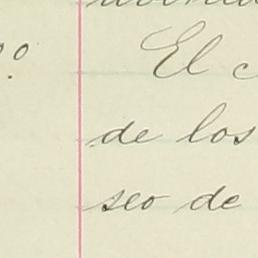 El
de los
seo de